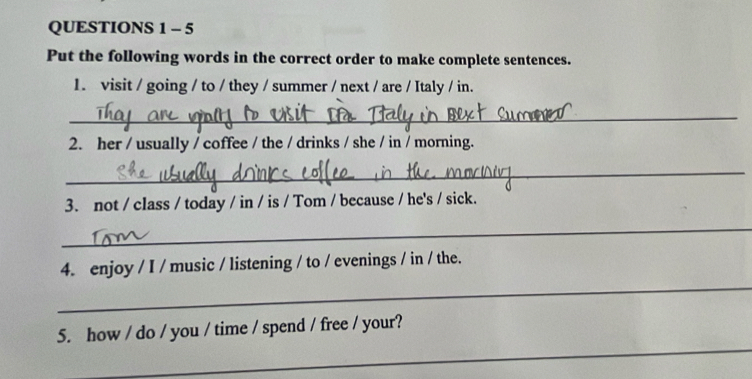 QUESTIONS 1 – 5
Put the following words in the correct order to make complete sentences.
1. visit / going / to / they / summer / next / are / Italy / in.
They are going to visit Italy in next summer
2. her / usually / coffee / the / drinks / she / in / morning.
She usually drinks coffee in the morning
3. not / class / today / in / is / Tom / because / he's / sick.
Tom
4. enjoy / I / music / listening / to / evenings / in / the.
5. how / do / you / time / spend / free / your?